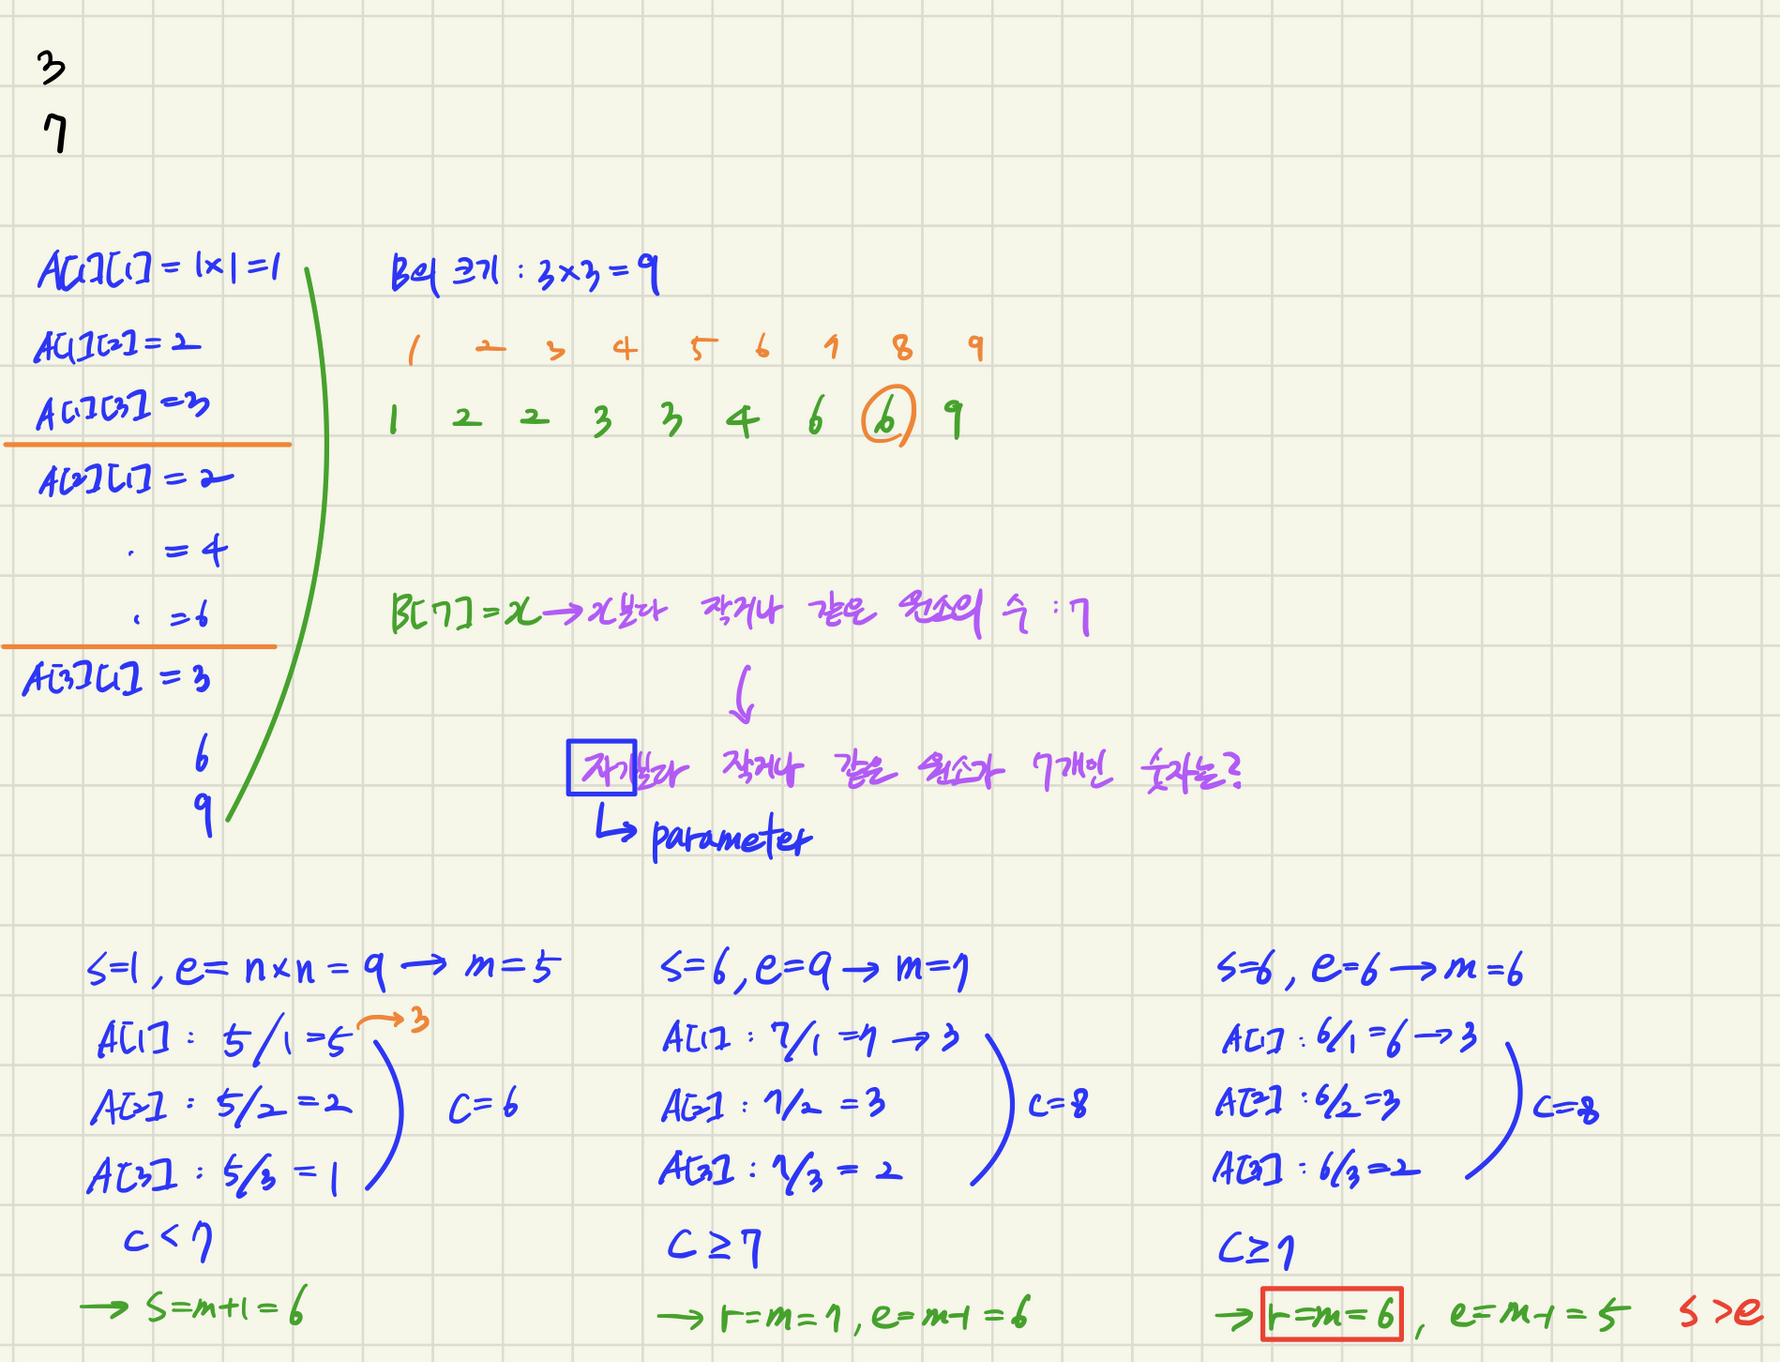 3
7
A[1][1] = 1×1 = 1
A[1][2] = 2
A[1][3] = 3
A[2][1] = 2
. = 4
. = 6
A[3][1] = 3
6
9
B의 크기 : 3×3 = 9
1 2 3 4 5 6 7 8 9
1 2 2 3 3 4 6 6 9
B[7] = x → x보다 작거나 같은 원소의 수 : 7
자기보다 작거나 같은 원소가 7개인 숫자는?
parameter
s=1, e= n×n = 9 → m=5
A[1] : 5/1 = 5 → 3
A[2] : 5/2 = 2
A[3] : 5/3 = 1
c = 6
c < 7
→ s=m+1=6
s=6, e=9 → m=7
A[1] : 7/1 = 7 → 3
A[2] : 7/2 = 3
A[3] : 7/3 = 2
c=8
c ≥ 7
→ r=m=7, e=m-1=6
s=6, e=6 → m=6
A[1] : 6/1 = 6 → 3
A[2] : 6/2 = 3
A[3] : 6/3 = 2
c=8
c ≥ 7
→ r=m=6, e=m-1=5 s>e